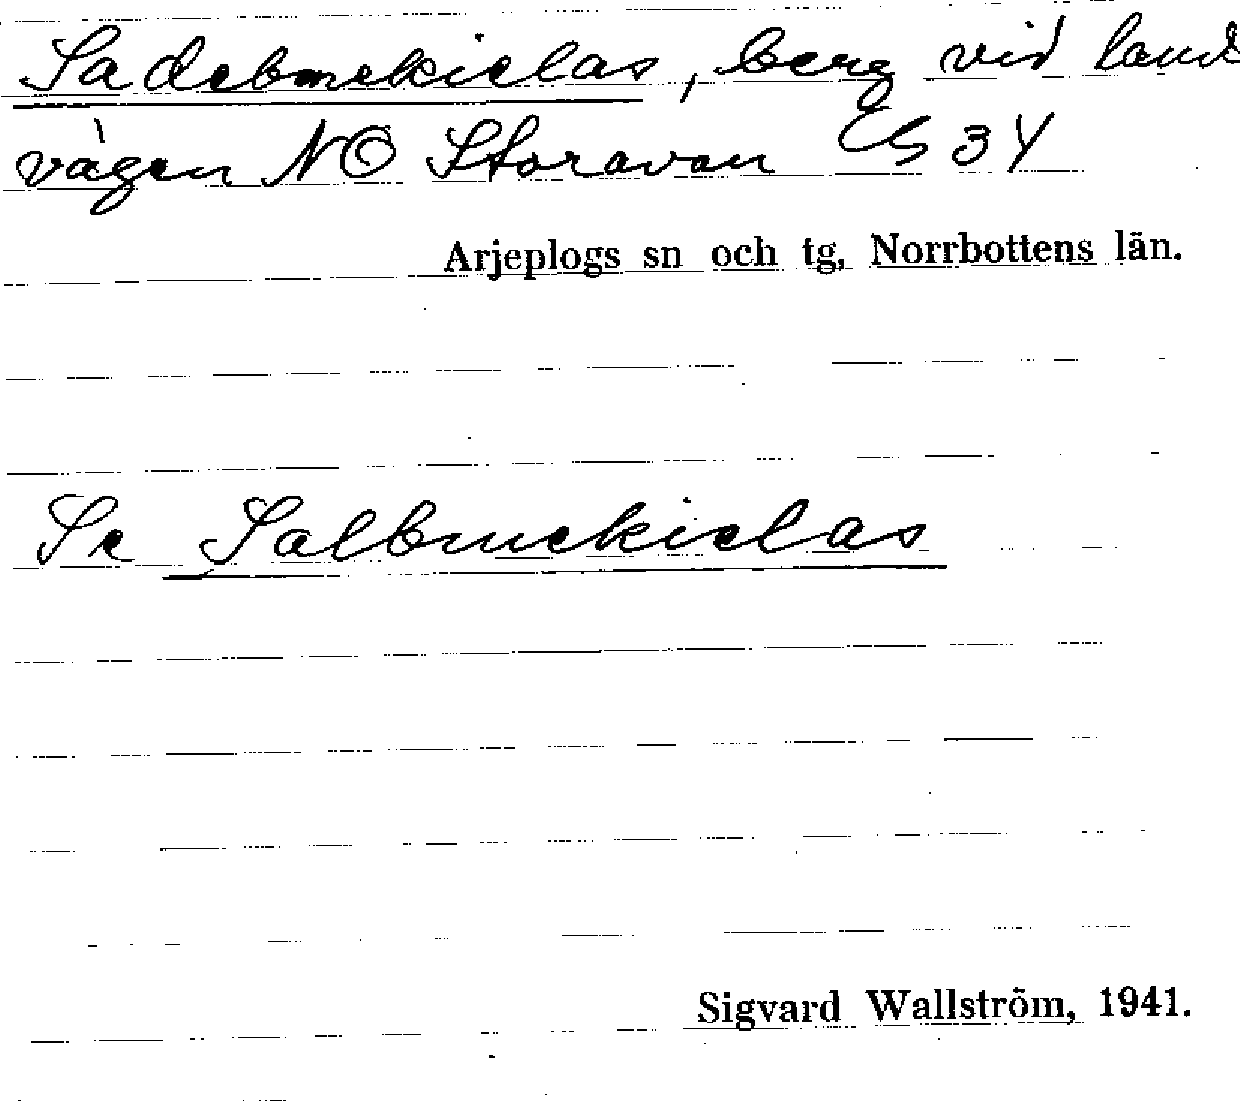 Sadebmekielas, berg vid land
vägen NO Storavan G 34
Arjeplogs sn och tg, Norrbottens län.
Se Salbmekielas
Sigvard Wallström, 1941.